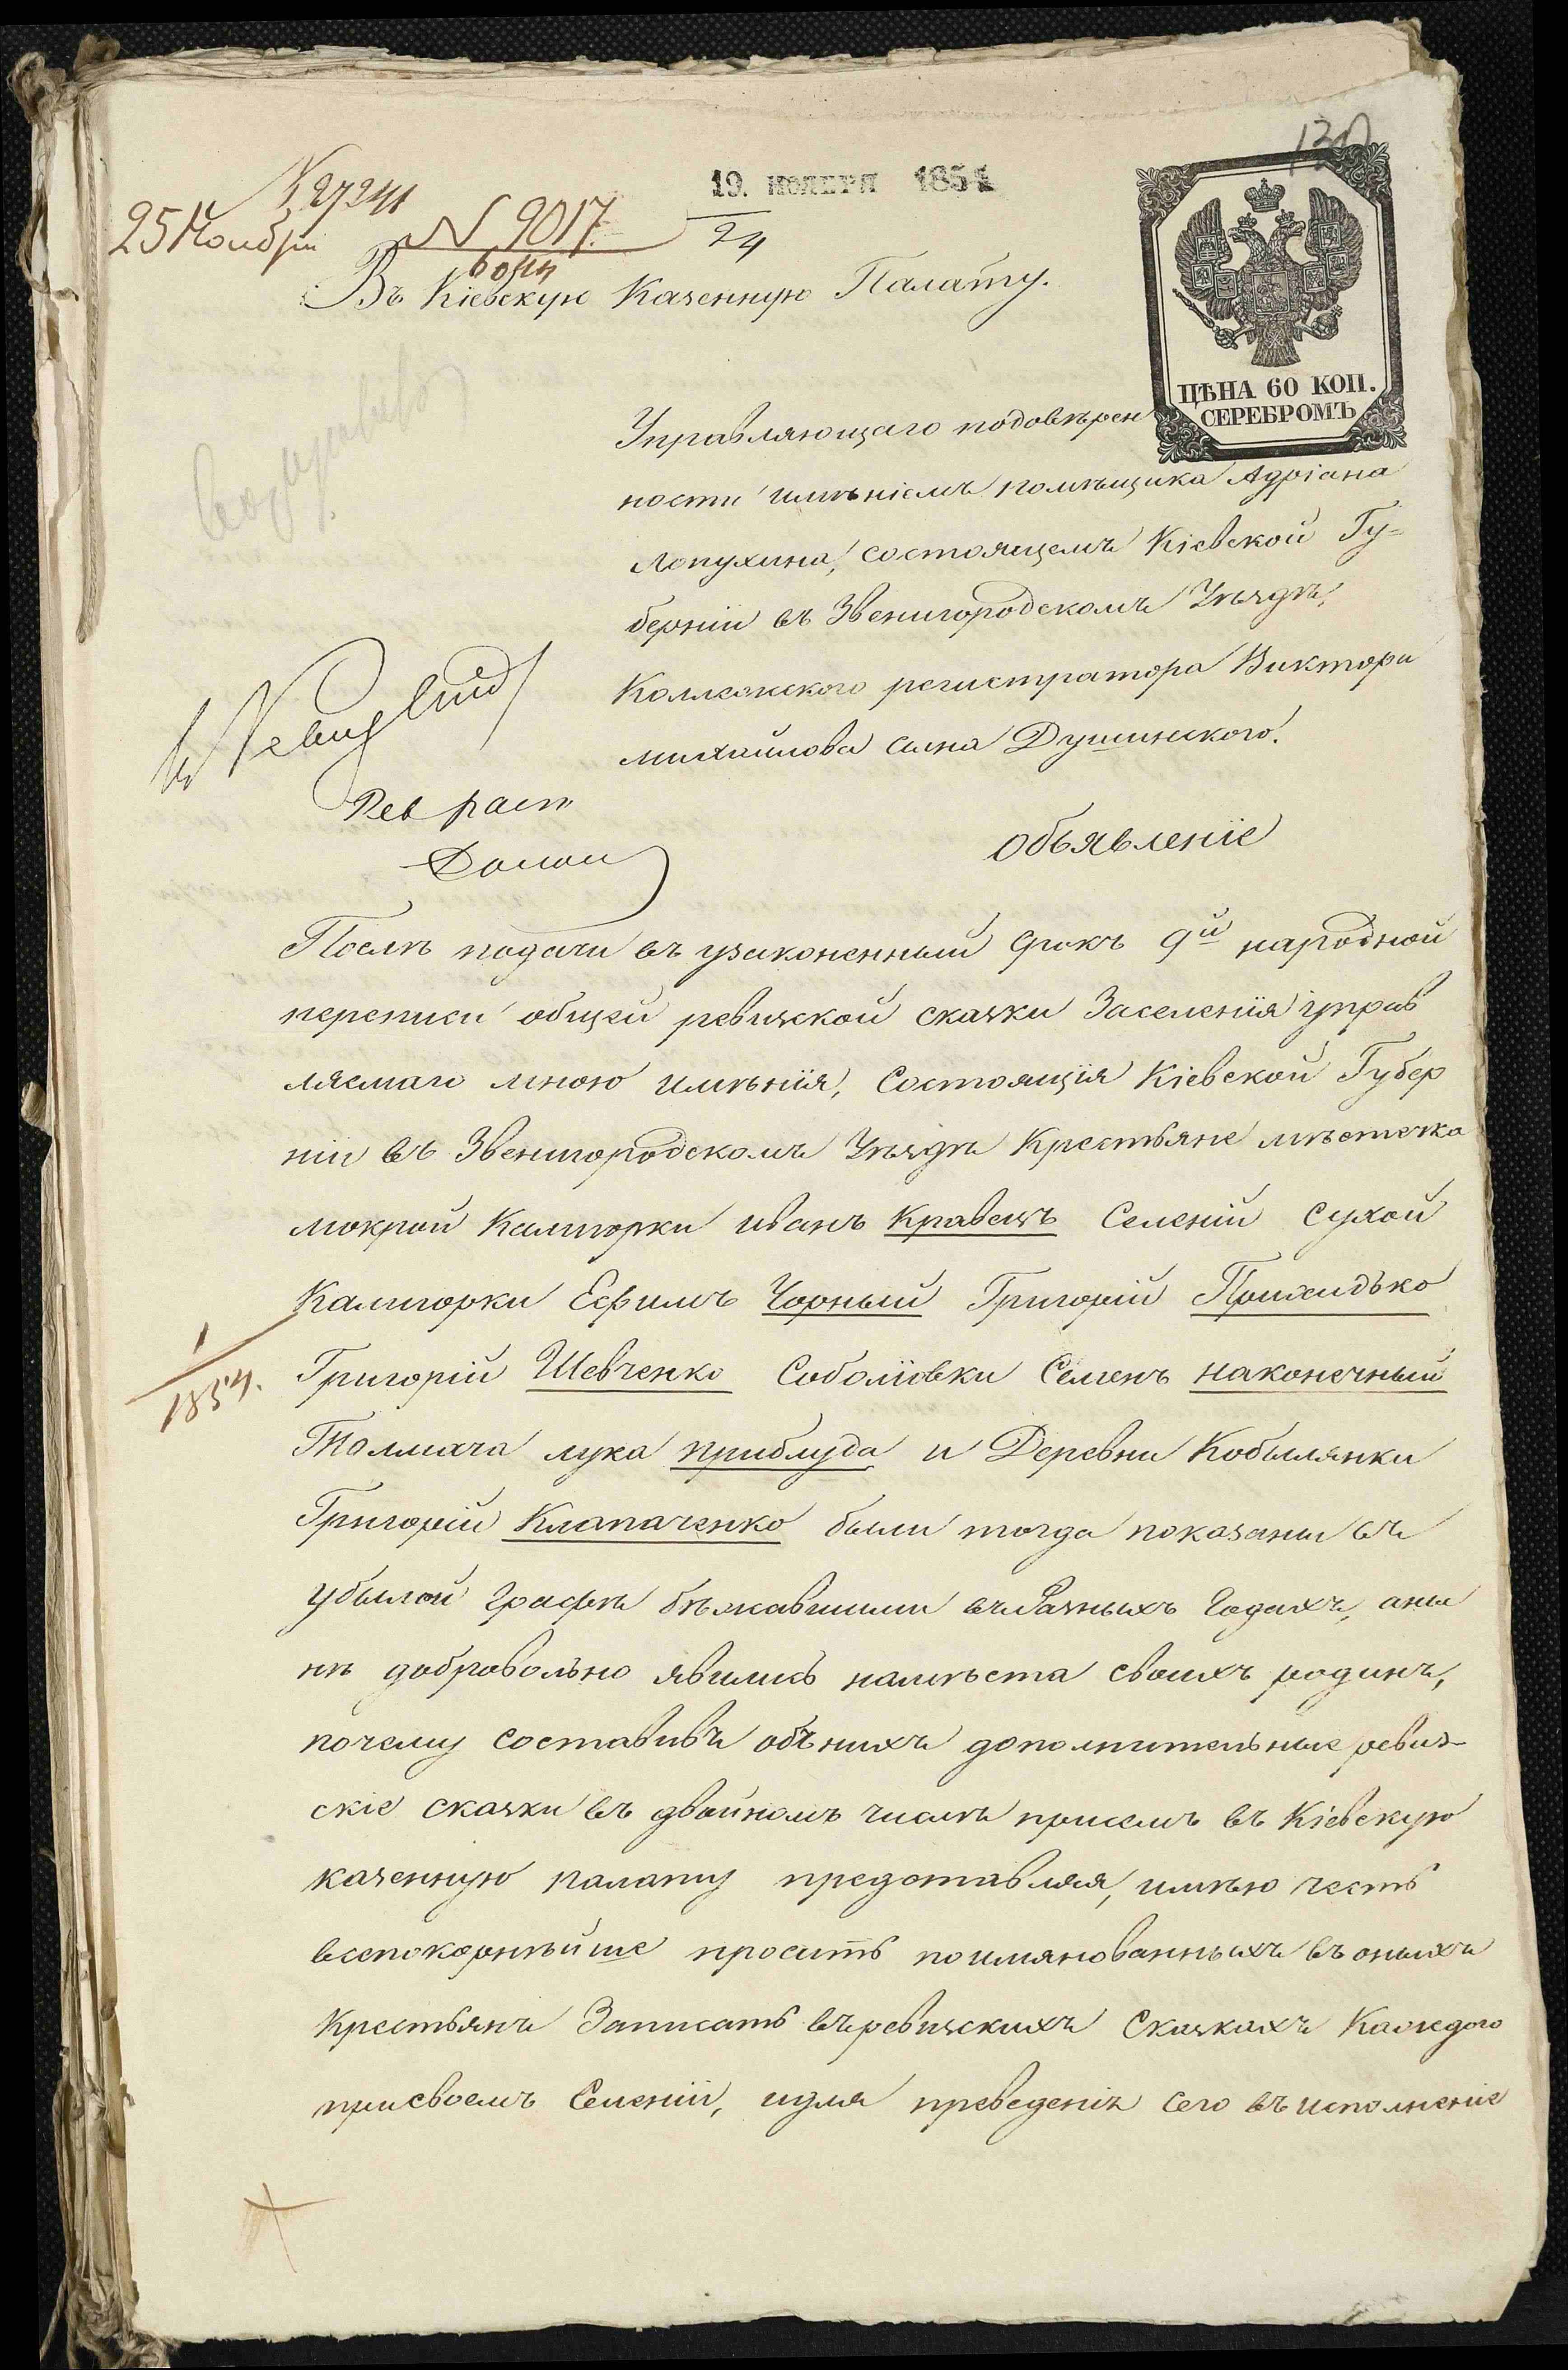 19. НОЯБРЯ 1851
24
25 Ноября
N 9017.
Въ Кіевскую Казенную Палату.
ЦѢНА 60 КОП.
СЕРЕБРОМЪ
Управляющаго подовѣрен
ности имѣніемъ помѣщика Адріана
Лопухина, состоящемъ Кіевской Гу-
берніи въ Звенигородскомъ Уѣздѣ,
Коллежского регистратора Виктора
михайлова сына Душинского.
Объявленіе
Послѣ подачи въ узаконенный срокъ 9й народной
переписи общей ревизской сказки Заселенія управ
ляемаго мною имѣнія, Состоящія Кіевской Губер
ніи въ Звенигородскомъ Уѣздѣ Крестьяне мѣстечка
мокрой Калигорки иванъ Кравецъ Селеній Сухой
Калигорки Ефимъ Чорный Григорій Прихидько
Григорій Шевченко Соболіовки Семенъ наконечный
Толмача лука приблуда и Деревни Кобылянки
Григорій Клапаченко были тогда показаны въ
убылой графѣ бѣжавшими въ разныхъ Годахъ, аны
нѣ добровольно явились намѣста своихъ родинъ,
почему Составивъ обънихъ дополнительные ревиз-
скіе сказки въ двойномъ числѣ присемъ въ Кіевскую
казенную палату представляя, имѣю честь
всепокорнѣйше просить поимянованныхъ въ оныхъ
Крестьянъ Записать въ ревизскихъ Сказкахъ Каждого
присвоемъ Селеніи, идля преведенія Сего въ исполненіе
1
1854.